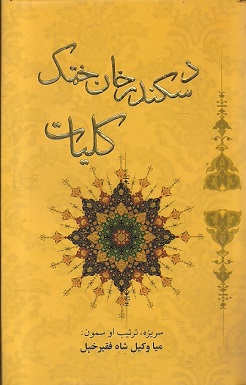 د سکندر خان خټک
کلیات
سریزه، ترتیب او سمون:
میا وکیل شاه فقیرخېل